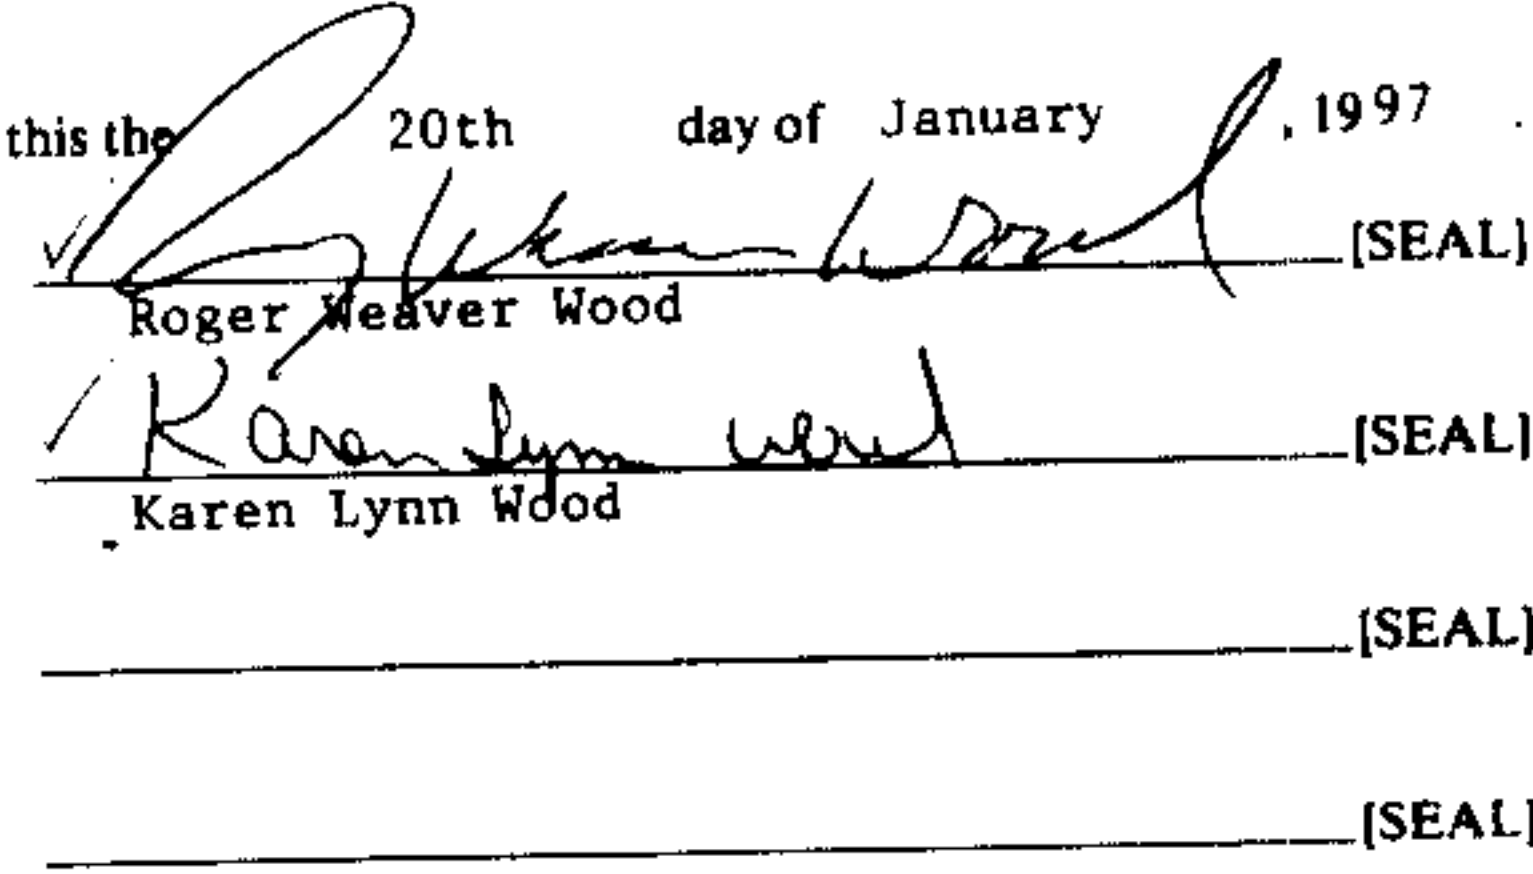 this the 20th day of January, 1997.
Roger Weaver Wood [SEAL]
Roger Weaver Wood
Karen Lynn Wood [SEAL]
Karen Lynn Wood
[SEAL]
[SEAL]